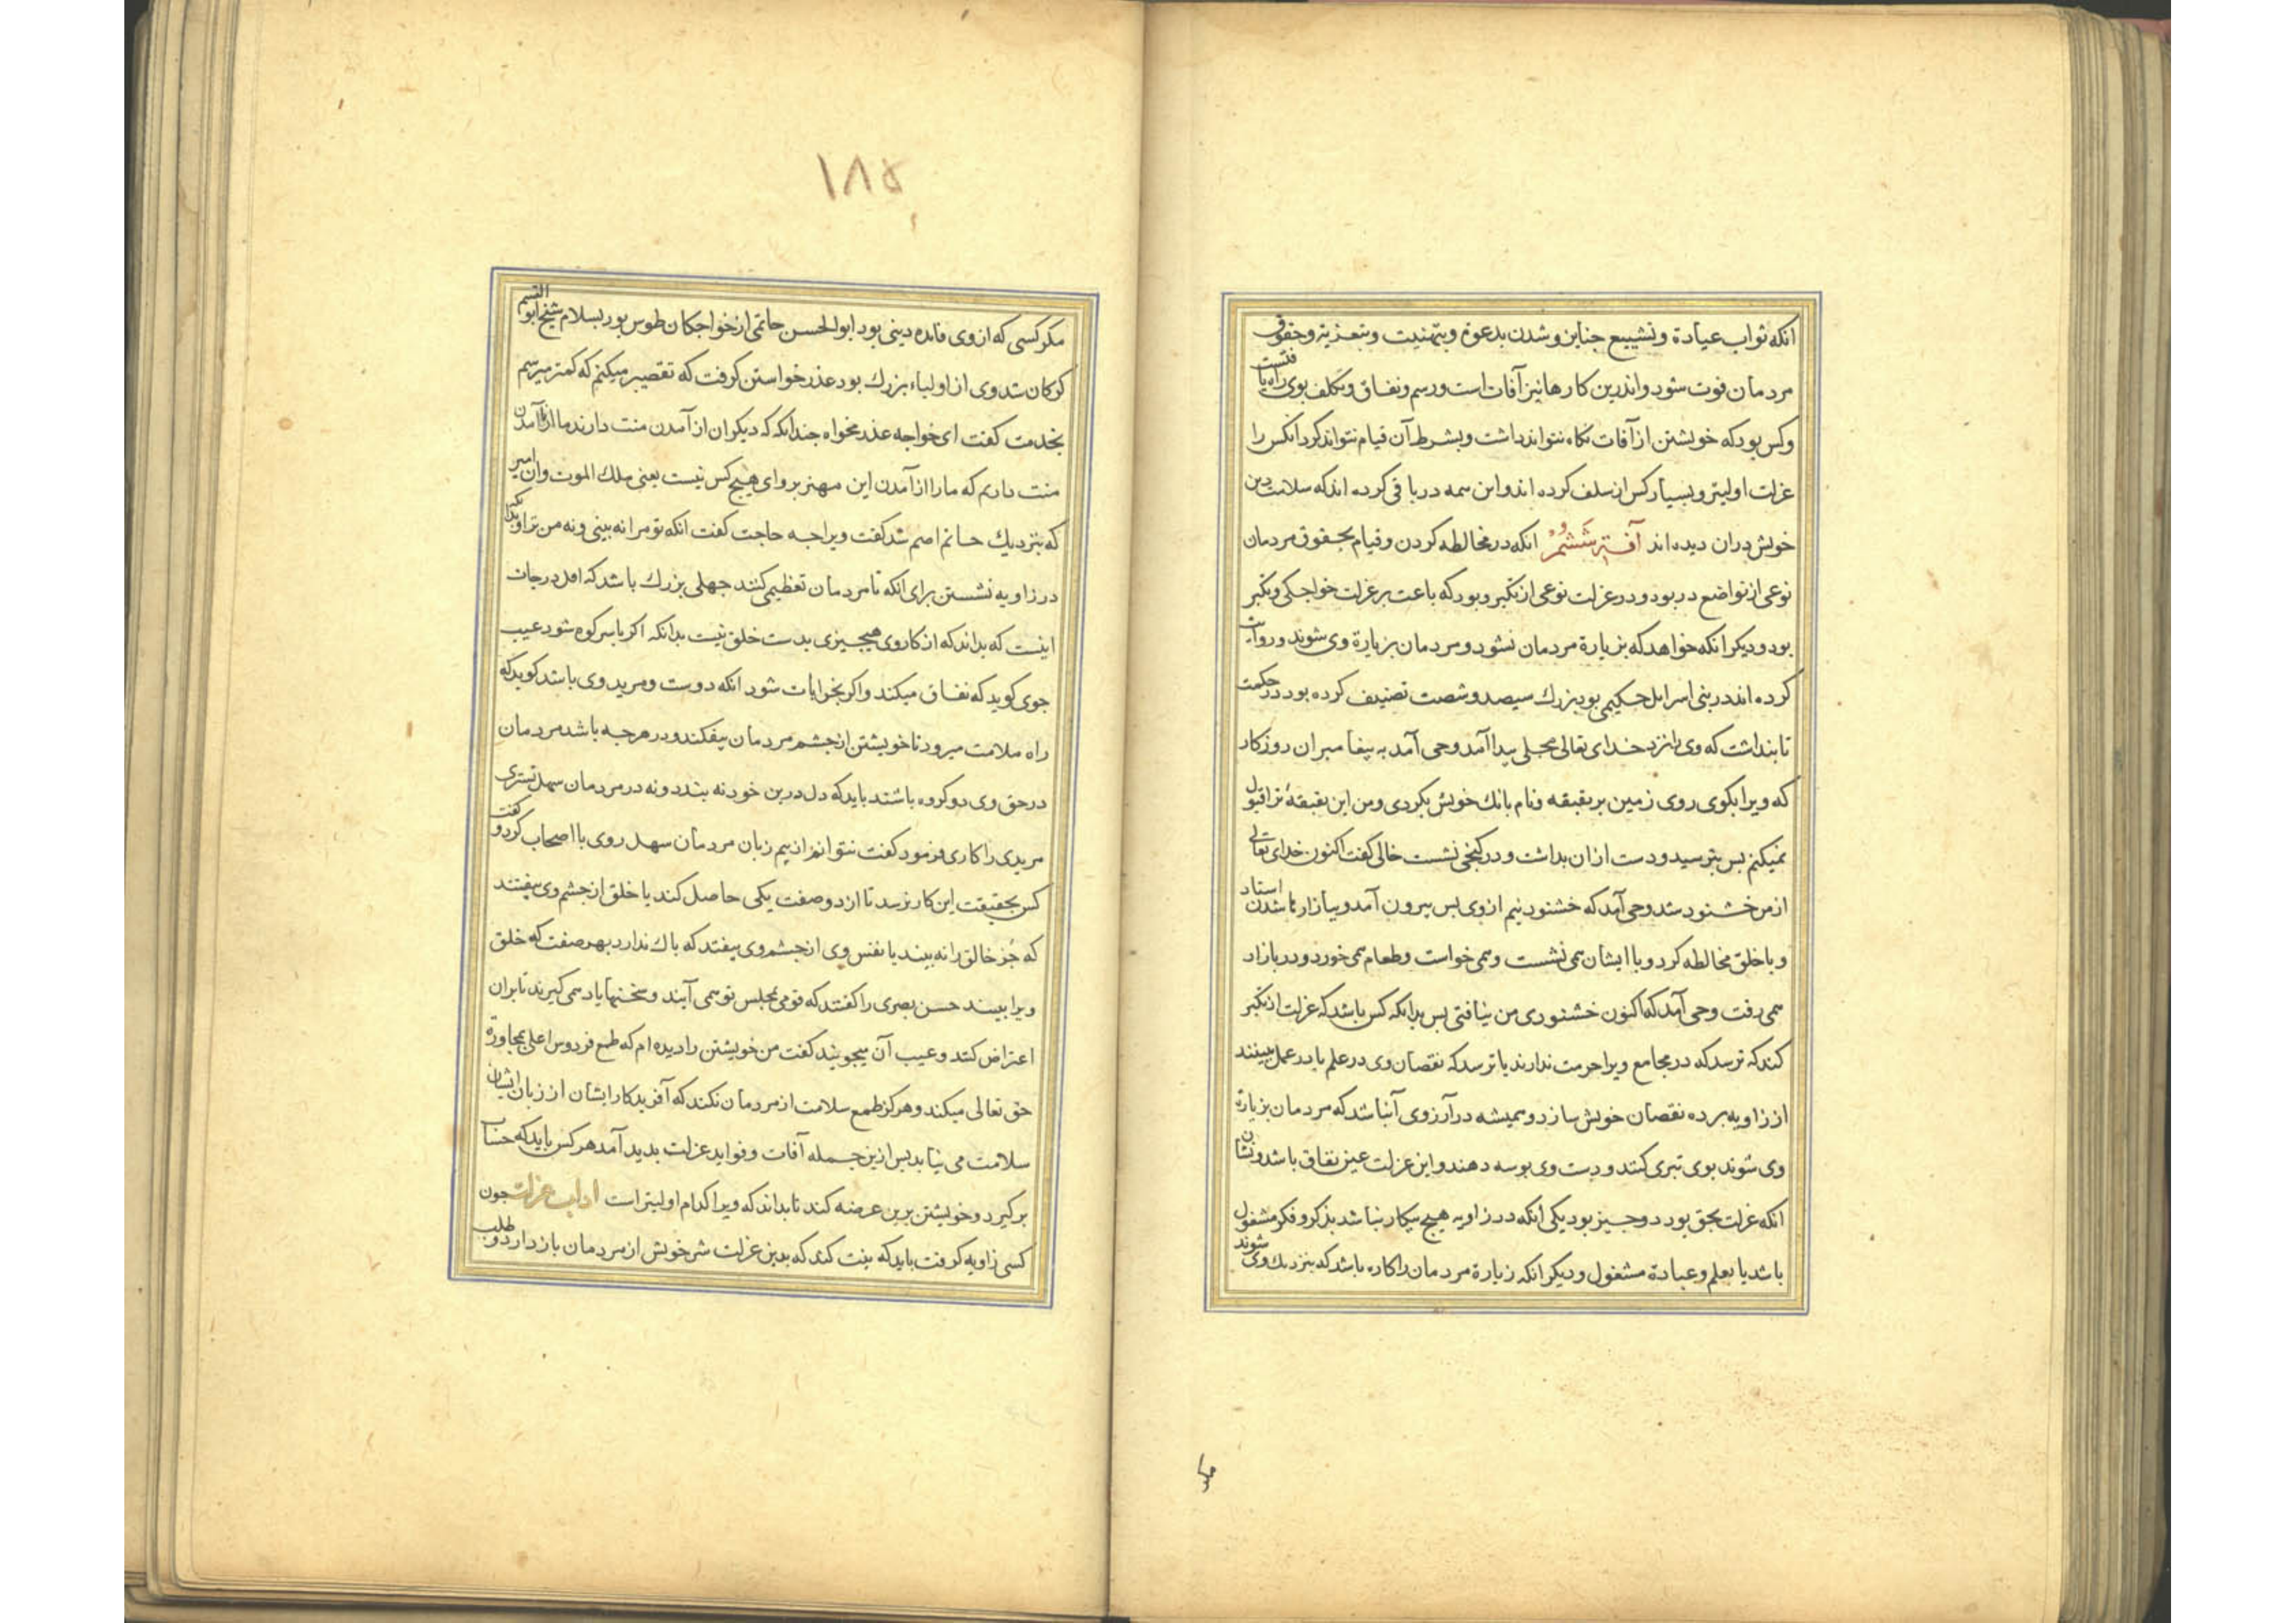 انکه ثواب عیادة وتشییع جنایز وشدن بدعوة وبتهنیت وبتعزیة وحقوق
مردمان فوت شود واندرین کارها نیز آفات است ورسم ونفاق وتکلف بوی راه یافتست
وکس بود که خویشتن از آفات نکاه نتواند داشت وبشرط آن قیام نتواند کرد انکس را
عزلت اولیتر وبسیار کس از سلف کرده اند واین همه در باقی کرده اند که سلامت دین
خویش دران دیده اند آفت ششم انکه در مخالطه کردن وقیام بحقوق مردمان
نوعی از تواضع در بود ودر عزلت نوعی از تکبر وبود که باعث بر عزلت خواجکی وتکبر
بود ودیکر انکه خواهد که بزیارة مردمان نشود ومردمان بزیارة وی شوند وروایت
کرده اند در بنی اسرایل حکیمی بود بزرك سیصد وشصت تصنیف کرده بود در حکمت
تا بنداشت که وی را نزد خدای تعالی محلی پیدا آمد وحی آمد به پیغامبر ان روزکار
که ویرا بکوی روی زمین بر بقبقه ونام بانك خویش بکردی ومن این بقبقهٔ ترا قبول
نمیکنم بس بترسید ودست ازان بداشت ودر کنجی نشست خالی کفت اکنون خدای تعالی
از من خشنود شد وحی آمد که خشنود نیم ازوی بس بیرون آمد وببازارها شدن استاد
وبا خلق مخالطه کرد وبا ایشان همی نشست وهمی خواست وطعام همی خورد ودر بازار
همی رفت وحی آمد که اکنون خشنودی من بیافتی بس بدانکه کس باشد که عزلت از تکبر
کند که ترسد که در مجامع ویرا حرمت ندارند یا ترسد که نقصان وی در علم یا در عمل ببینند
از زاویه برده نقصان خویش سازد وهمیشه در آرزوی آنباشد که مردمان بزیارة
وی شوند بوی تبری کنند ودست وی بوسه دهند واین عزلت عین نفاق باشد ونشان
انکه عزلت بحق بود دو جیز بود یکی انکه در زاویه هیج بیکار نباشد بذکر وفکر مشغول
باشد یا بعلم وعبادة مشغول ودیکر انکه زیارة مردمان را کاره باشد که بنزدیك وی شوند
مکر
۱۸۵
مکر کسی که ازوی فایده دینی بود ابوالحسن حاتمی از خواجکان طوس بود بسلام شیخ ابوالقسم
کرکان شد وی از اولیاء بزرك بود عذر خواستن کرفت که تقصیر میکنم که کمتر میرسم
بخدمت کفت ای خواجه عذر مخواه جندانکه که دیکران از آمدن منت دارند ما از نا آمدن
منت داریم که مارا از آمدن این مهتر بروای هیج کس نیست یعنی ملك الموت وان امیر
که بنزدیك حاتم اصم شد کفت ویرا جه حاجت کفت انکه تو مرا نه بینی ونه من ترا وبدانکه
در زاویه نشستن برای انکه تا مردمان تعظیم کنند جهلی بزرك باشد که اقل درجات
اینست که بداند که از کار وی هیجیزی بدست خلق نیست بدانکه اکر با سر کوه شود عیب
جوی کوید که نفاق میکند واکر بخرابات شود انکه دوست ومرید وی باشد کوید که
راه ملامت میرود تا خویشتن از جشم مردمان بیفکند ودر هرجه باشد مردمان
در حق وی دو کروه باشند باید که دل در دین خود نه بندد ونه در مردمان سهل تستری
مریدی را کاری فرمود کفت نتوانم از بیم زبان مردمان سهل روی با اصحاب کرد وکفت
کس بحقیقت این کار نرسد تا از دو صفت یکی حاصل کند یا خلق از جشم وی بیفتند
که جز خالق را نه بیند یا نفس وی از جشم وی بیفتد که باك ندارد بهر صفت که خلق
ویرا بینند حسن بصری را کفتند که قومی بمجلس تو می آیند وسخنها یاد می کیرند تا بران
اعتراض کنند وعیب آن میجویند کفت من خویشتن را دیده ام که طمع فردوس اعلی مجاورة
حق تعالی میکند وهرکز طمع سلامت از مردمان نکند که آفریدکار ایشان از زبان ایشان
سلامت می نیابد بس ازین جمله آفات وفواید عزلت بدید آمد هر کس باید که حساب
برکیرد وخویشتن برین عرضه کند تا بداند که ویرا کدام اولیتر است اداب عزلت جون
کسی زاویه کرفت باید که نیت کند که بدین عزلت شر خویش از مردمان باز دارد وطلب